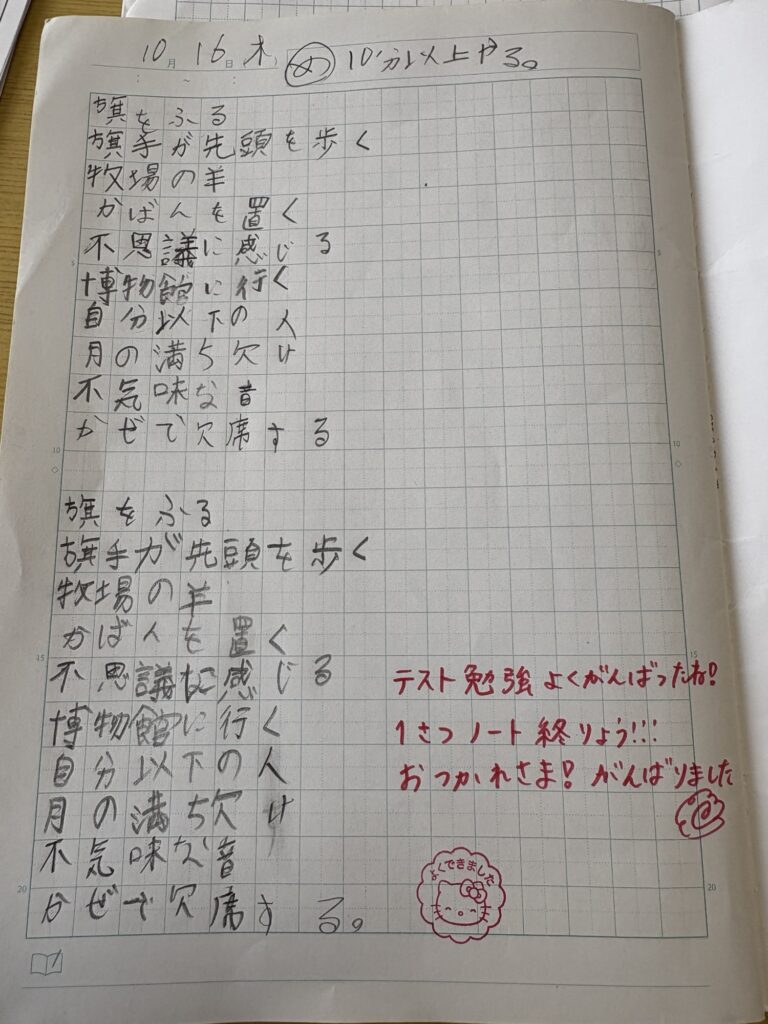 10月16日木 め 10分以上やる。
旗をふる
旗手が先頭を歩く
牧場の羊
かばんを置く
不思議に感じる
博物館に行く
自分以下の人
月の満ち欠け
不気味な音
かぜで欠席する
旗をふる
旗手が先頭を歩く
牧場の羊
かばんを置く
不思議に感じる
博物館に行く
自分以下の人
月の満ち欠け
不気味な音
かぜで欠席する。
テスト勉強よくがんばったね!
1さつノート終りょう!!!
おつかれさま! がんばりました
よくできました
5
10
15
20
5
10
15
20